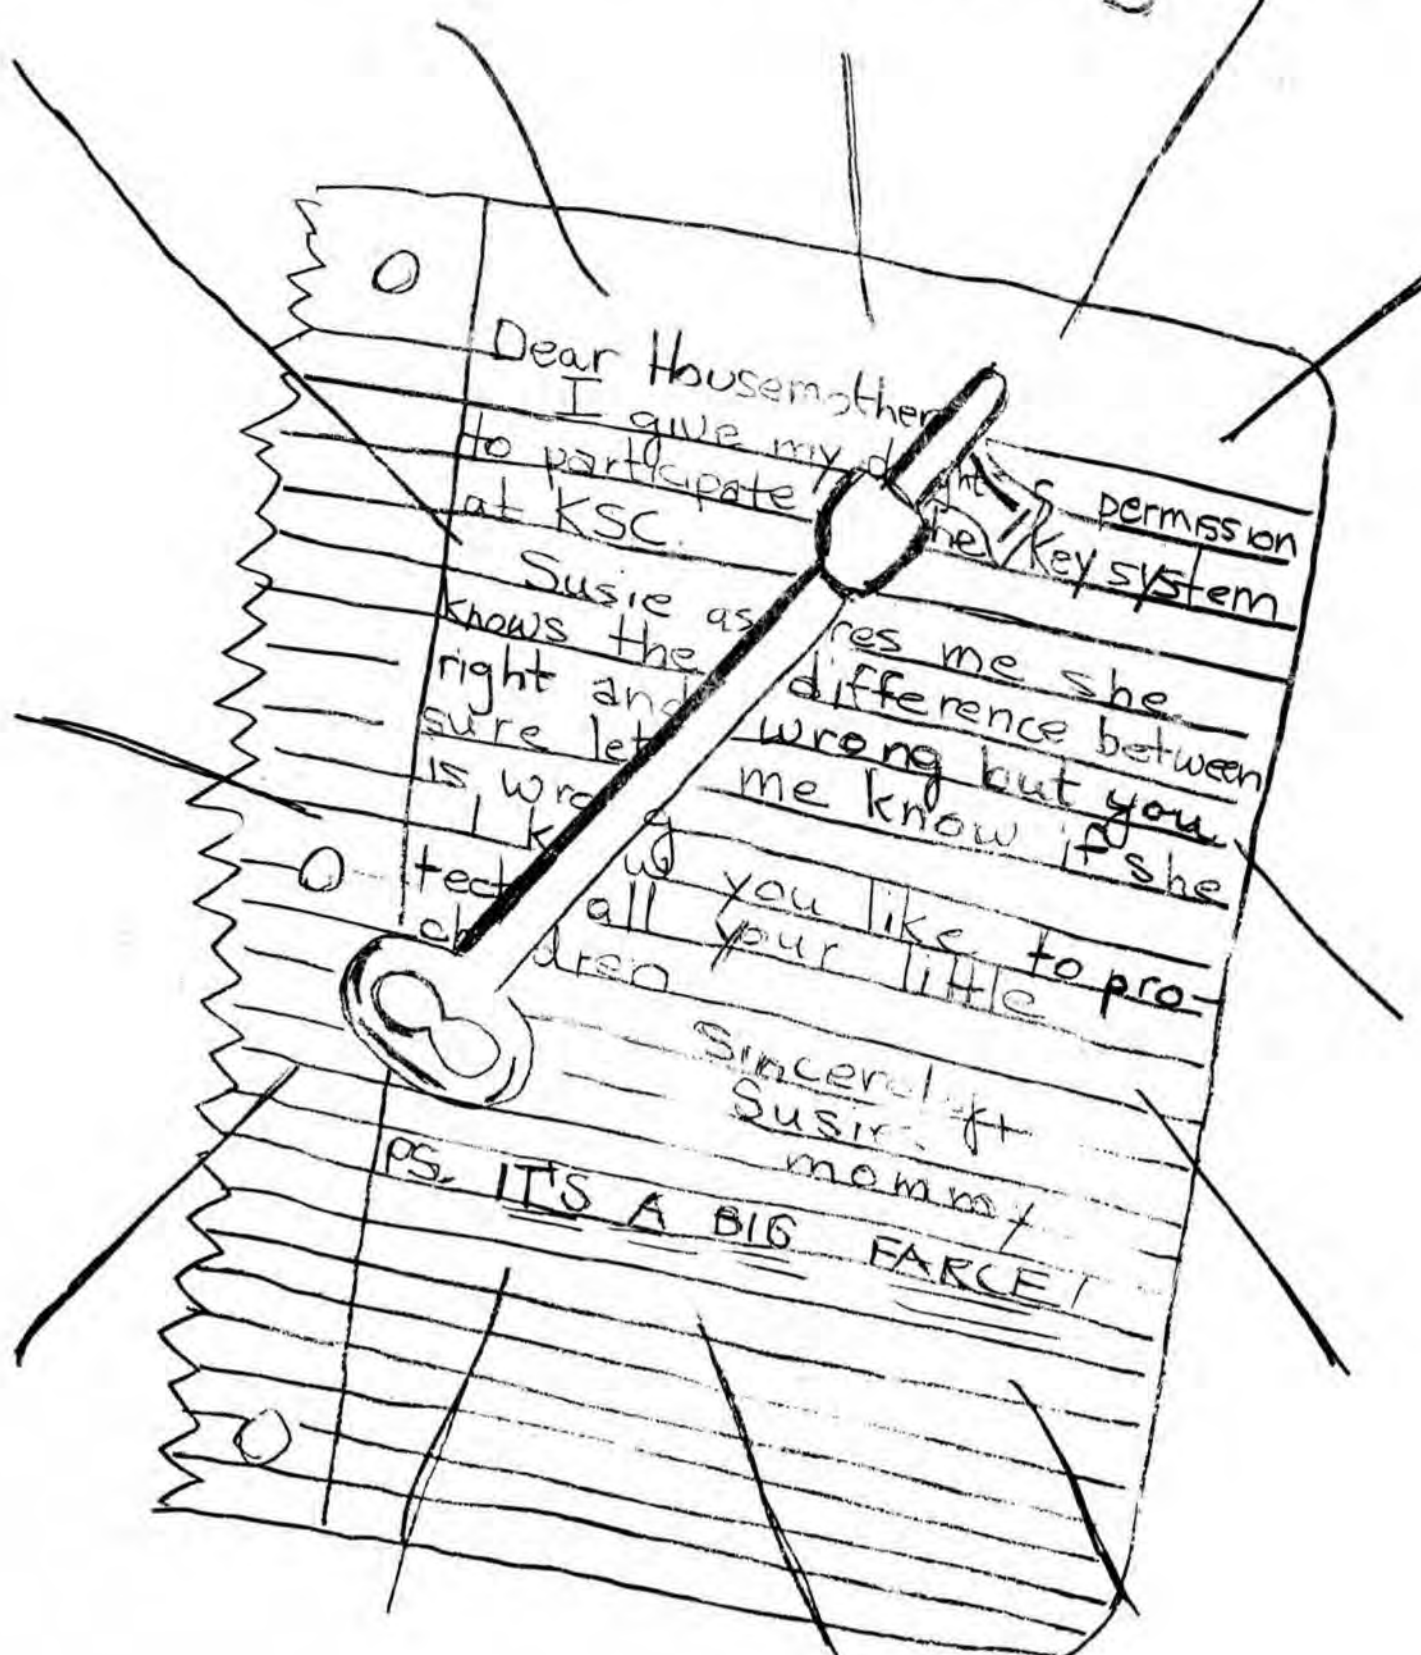 Dear Housemother
I give my permission
to participate the key system
at KSC.
Susie me she
knows the difference between
right and wrong but you
sure let me know if she
is wrong
I you like to pro-
tect all your little
Sincerely
mommy
PS. IT'S A BIG FARCE!